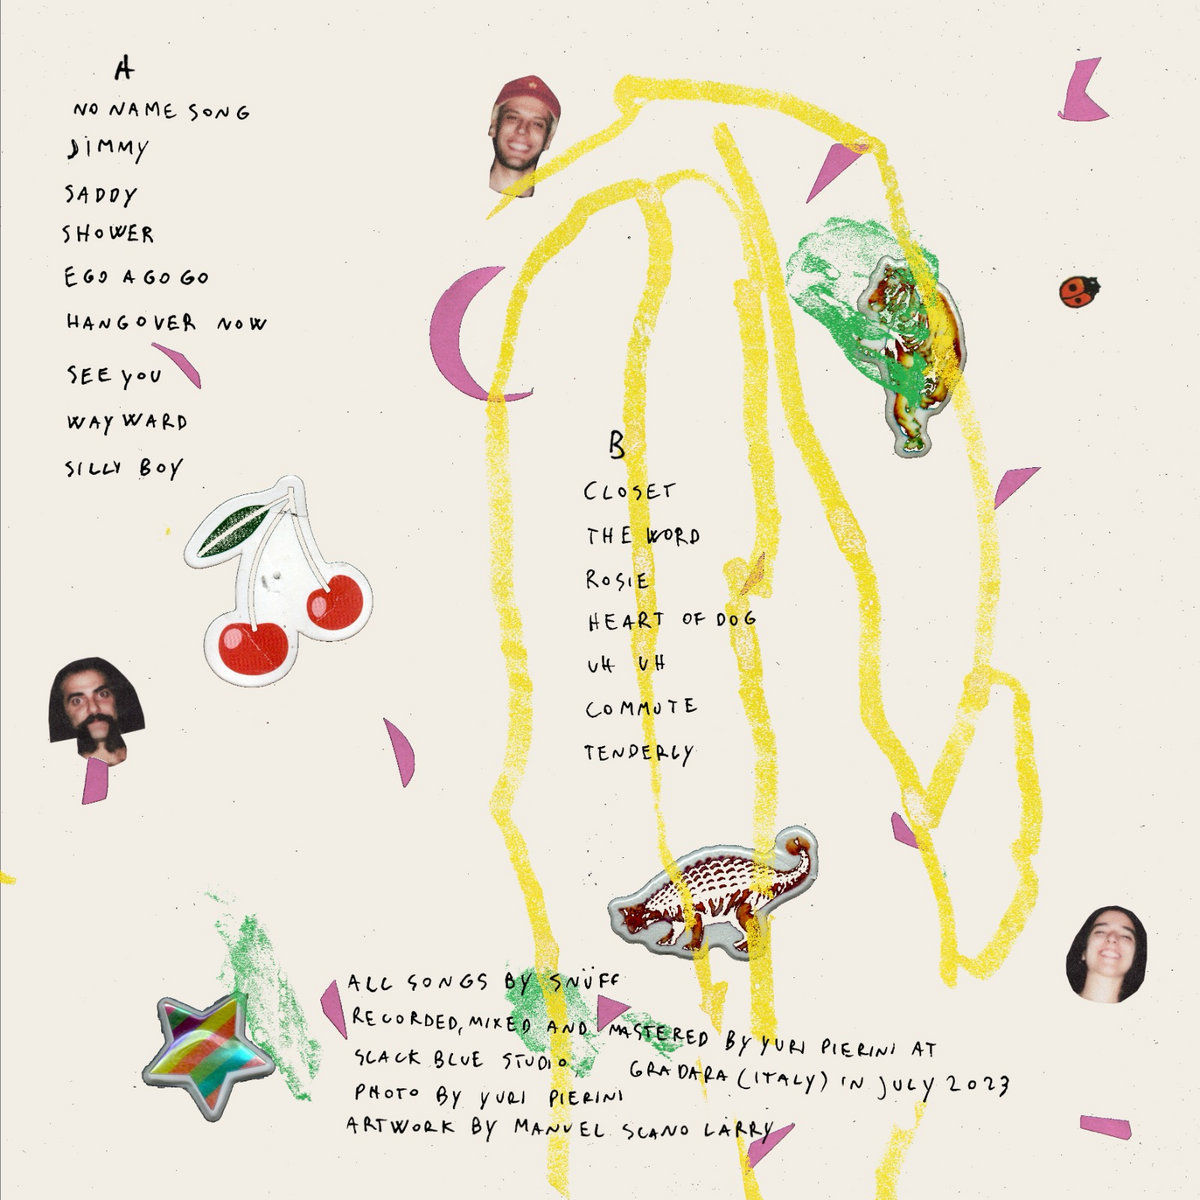 A
NO NAME SONG
JIMMY
SADDY
SHOWER
EGO A GO GO
HANGOVER NOW
SEE YOU
WAYWARD
SILLY BOY
B
CLOSET
THE WORD
ROSIE
HEART OF DOG
UH UH
COMMUTE
TENDERLY
ALL SONGS BY SNÜFF
RECORDED, MIXED AND MASTERED BY YURI PIERINI AT
SLACK BLUE STUDIO, GRADARA (ITALY) IN JULY 2023
PHOTO BY YURI PIERINI
ARTWORK BY MANUEL SCANO LARRY